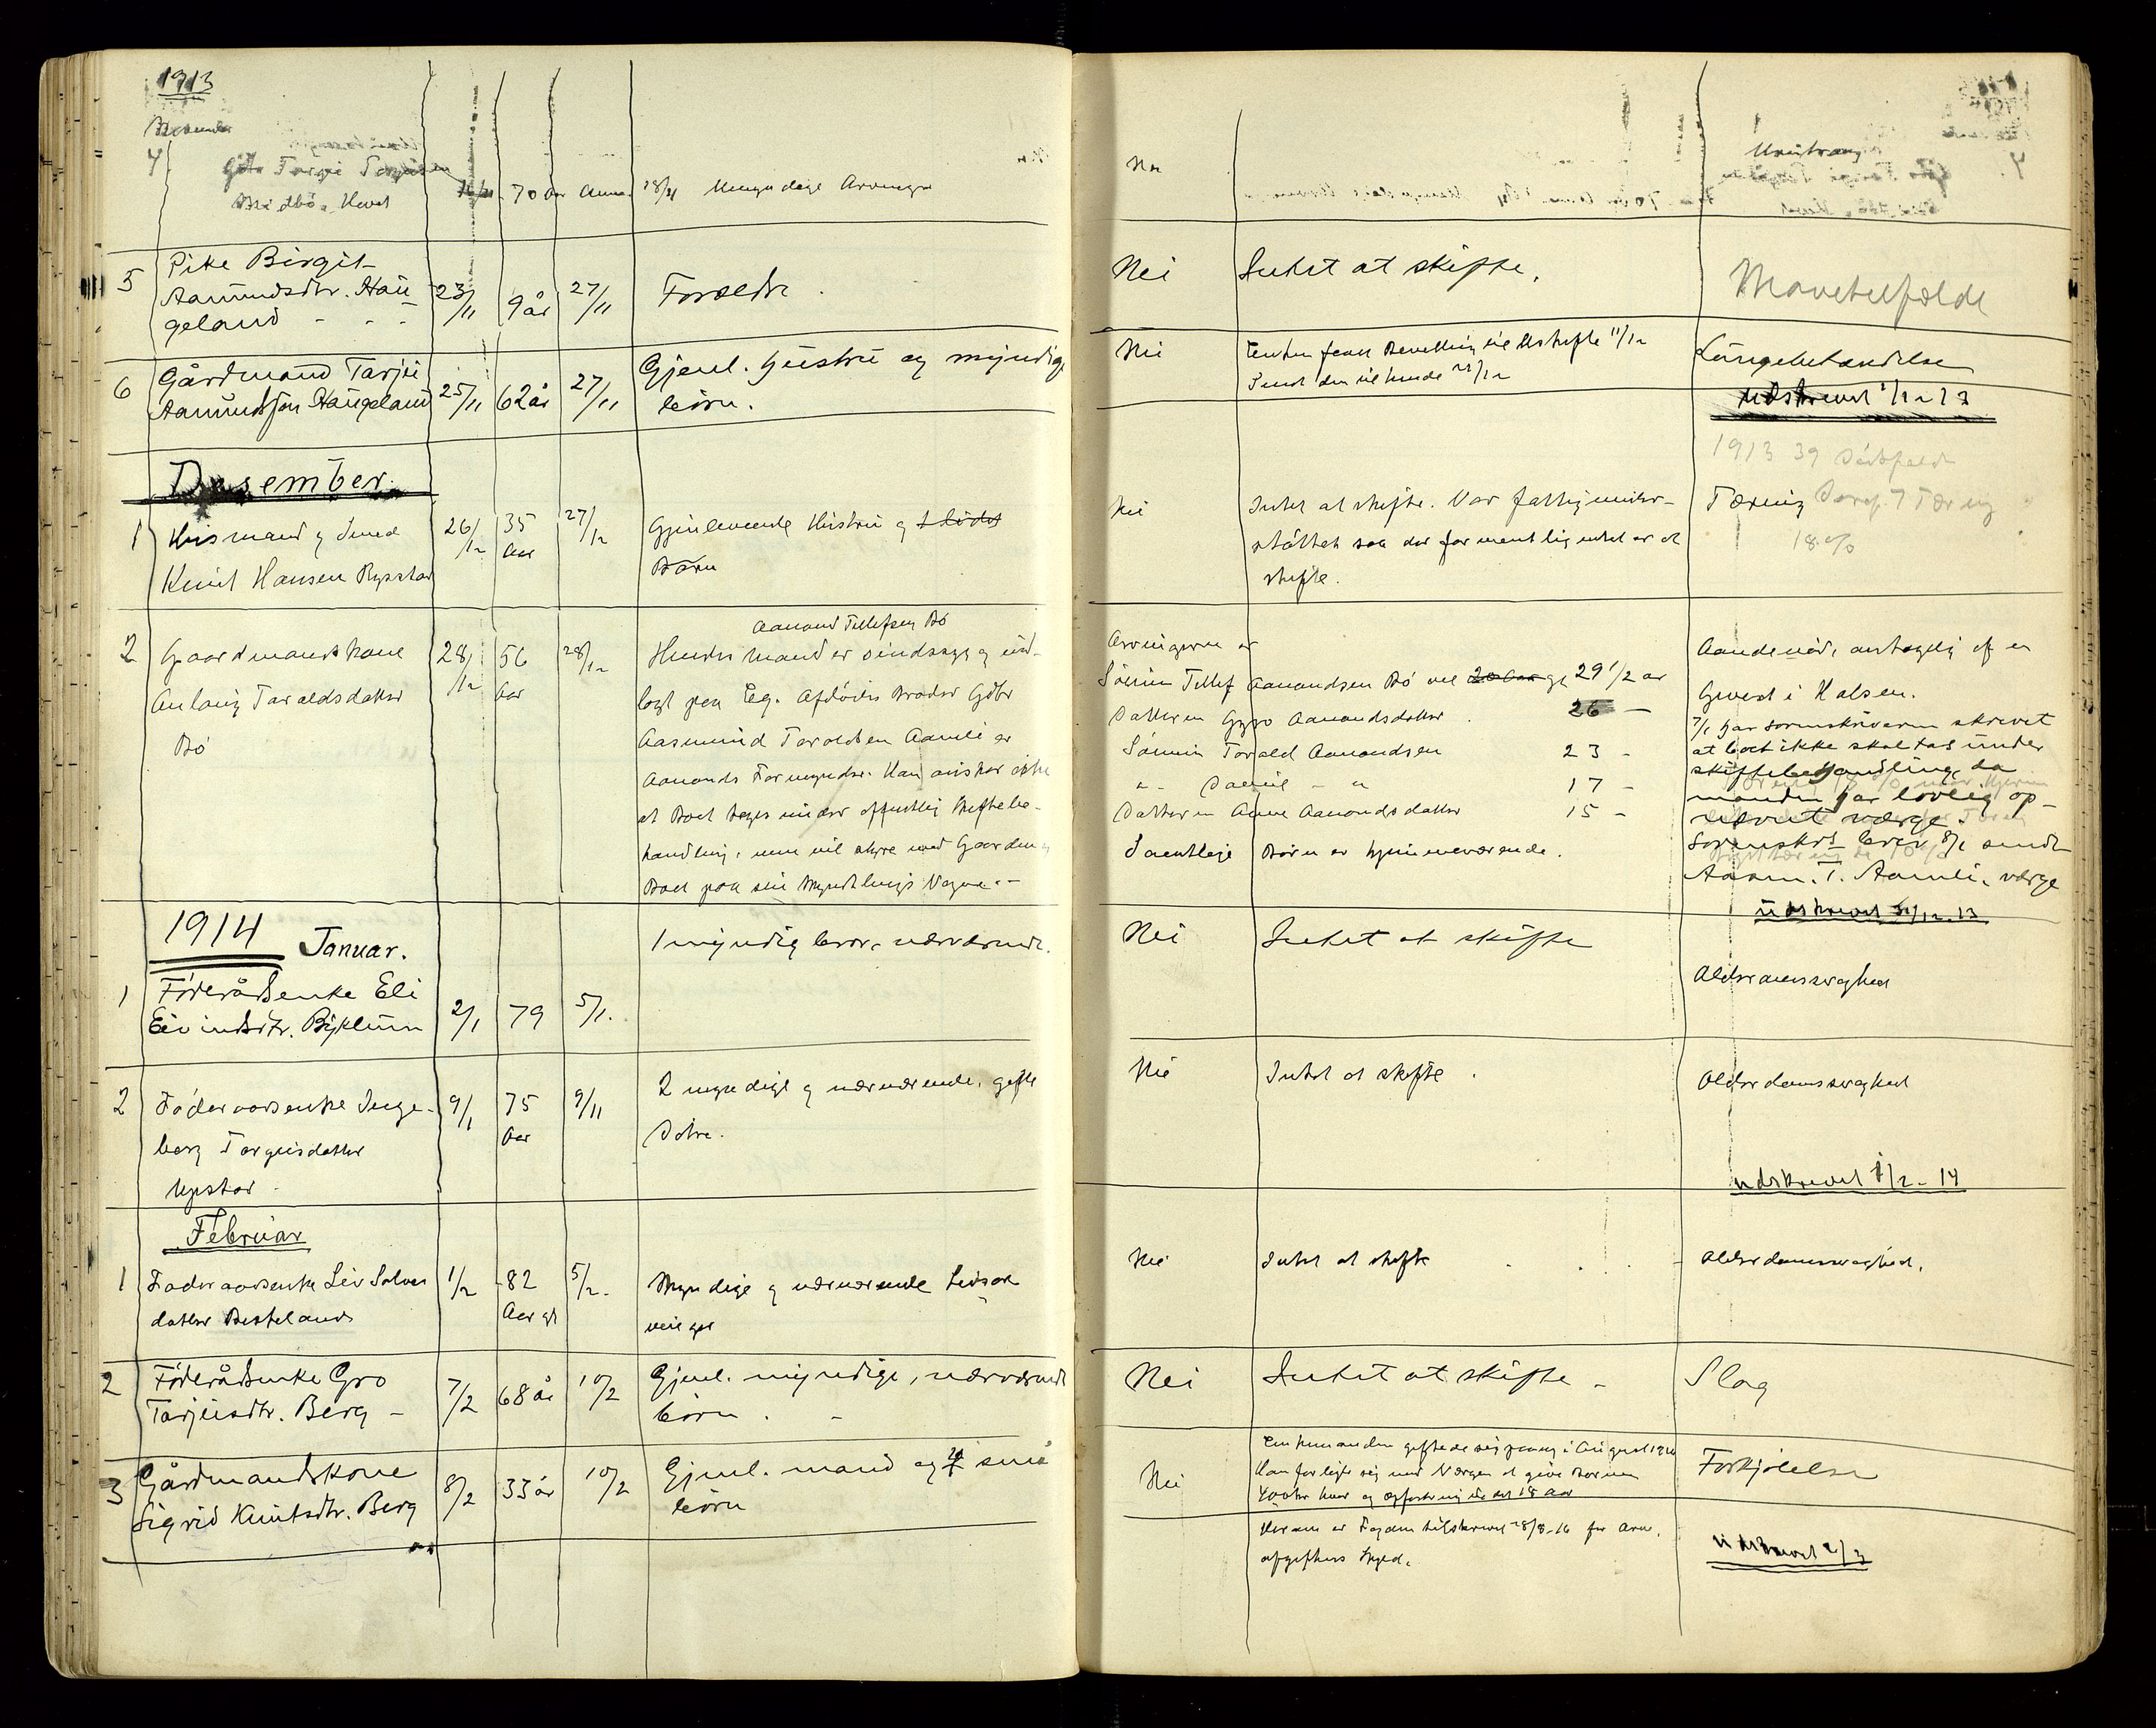 1913
4
Gbr Tarjei
70 Aar
Myndige Arvinger
5
Pike Birgit
Aamundsdtr. Hau
geland
23/11
9 år
27/11
Forældre
Nei
Intet at skifte.
Mavetilfælde
6
Gårdmand Tarjei
Aamundsson Haugeland
25/11
62 år
27/11
Gjenl. hustru og myndige
börn.
Nei
Enken fenk Bevilling til Uskifte 11/12
Sendt den til hende
Lungebetændelse
udskrevet 1/12 13
1913 39 Dödsfald
Desember.
1
Husmand og Smed
Knut Hansen Rysstad
26/12
35
Aar
27/12
Gjenlevende Hustru og 1 lidet
Barn
Nei
Intet at skifte. Var fattigunder-
støttet saa der formentlig intet er at
skifte.
Tæring
Tæring
18 %
2
Gaardmandskone
Anlaug Taraldsdatter
Bö
28/12
56
Aar
28/12
Aanond Tellefsen Bö
Hendes Mand er sindssyg og ud-
lagt paa Eg. Afdödes Broder Gbr
Aasmund Taraldsen Aamli er
Aanonds Formynder. Han ønsker ikke
at Boet tages under offentlig Skiftebe-
handling, men vil styre med Gaarden og
Boet paa sin Myndlings Vegne.-
Arvingerne er
Sönnen Tellef Aanondsen Bö 29 1/2 ar
Datteren Gyro Aanondsdatter 26 -
Sönnen Torald Aanondsen 23 -
" Daniel - " 17 -
Datteren Anne Aanondsdatter 15 -
Samtlige Börn er hjemmeværende.
Aandenöd, antagelig af en
Svulst i Halsen.
7/1 har sorenskriveren skrevet
at boet ikke skal tas under
skiftebehandling, da
manden har lovlig op-
nævnt værge.
Sorenskrs brev 8/1 sendt
Aasm. T. Aamli, værge
udskrevet 31/12 13
1914
Januar.
1
Föderådsenke Eli
Eivindsdtr. Byklum
2/1
79
5/1.
1 myndig bror, nærværende.
Nei
Intet at skifte
Alderdomssvaghed
2
Föderaadsenke Inge-
borg Torgeisdatter
Upstad
9/1
75
Aar
9/11
2 myndige og nærværende, gifte
Døtre.
Nei
Intet at skifte.
Alderdomssvaghed
udskrevet 1/2 - 14
Februar
1
Föderaadsenke Liv Salves
datter Besteland
1/2
82
Aar gl
5/2.
Myndige og nærværende Livsar
vinger
Nei
Intet at skifte
Alderdomssvaghed.
2
Föderådsenke Gro
Tarjeisdtr. Berg -
7/2
68 år
10/2
Gjenl. myndige, nærværende
börn.
Nei
Intet at skifte -
Slag
3
Gårdmandskone
Sigrid Knutsdtr. Berg
8/2
33 år
10/2
Gjenl. mand og 4 små
börn
Nei
Enkemanden giftede sig paany i August 1916
Han forligte sig med Værgen at give Börnene
400 kr hver og opfostring til det 18 Aar
Herom er Fogden tilskrevet 28/8-16 for Arve-
afgiftens Skyld.
Forkjölelse
udskrevet 2/3